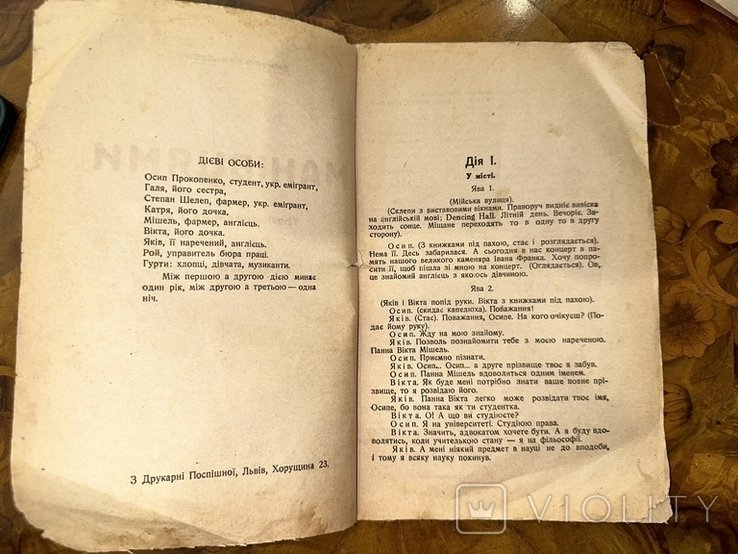 ДІЄВІ ОСОБИ:
Осип Прокопенко, студент, укр. емігрант,
Галя, його сестра,
Степан Шелеп, фармер, укр. емігрант,
Катря, його дочка.
Мішель, фармер, англієць.
Вікта, його дочка.
Яків, її наречений, англієць.
Рой, управитель бюра праці.
Гурти: хлопці, дівчата, музиканти.
Між першою а другою дією минає
один рік, між другою а третьою — одна
ніч.
З Друкарні Поспішної, Львів, Хорущина 23.
Дія І.
У місті.
Ява 1.
(Мійська вулиця).
(Склепи з виставовими вікнами. Праворуч видніє вивіска
на англійській мові; Dencing Hall. Літній день. Вечоріє. За-
ходить сонце. Міщане переходять то в одну то в другу
сторону).
Осип. (З книжками під пахою, стає і розглядається).
Нема її. Десь забарилася. А сьогодні в нас концерт в па-
мять нашого великого каменяра Івана Франка. Хочу попро-
сити її, щоб пішла зі мною на концерт. (Оглядається). Ов,
це знайомий англієць з якоюсь дівчиною.
Ява 2.
(Яків і Вікта попід руки. Вікта з книжками під пахою).
Осип. (скидає капелюха). Поважання!
Яків. (Стає). Поважання, Осипе. На кого очікуєш? (По-
дає йому руку).
Осип. Жду на мою знайому.
Яків. Позволь познайомити тебе з моєю нареченою.
Панна Вікта Мішель.
Осип. Приємно пізнати.
Яків. Осип... Осип... а друге прізвище твоє я забув.
Осип. Панна Мішель вдоволиться одним іменем.
Вікта. Як буде мені потрібно знати ваше повне прі-
звище, то я розвідаю його.
Яків. Панна Вікта легко може розвідати твоє імя,
Осипе, бо вона така як ти студентка.
Вікта. О! А що ви студіюєте?
Осип. Я на університеті. Студіюю права.
Вікта. Значить, адвокатом хочете бути. А я буду вдо-
волятись, коли учителькою стану — я на фільософії.
Яків. А мені ніякий предмет в науці не до вподоби,
і тому я всяку науку покинув.
VIOLITY